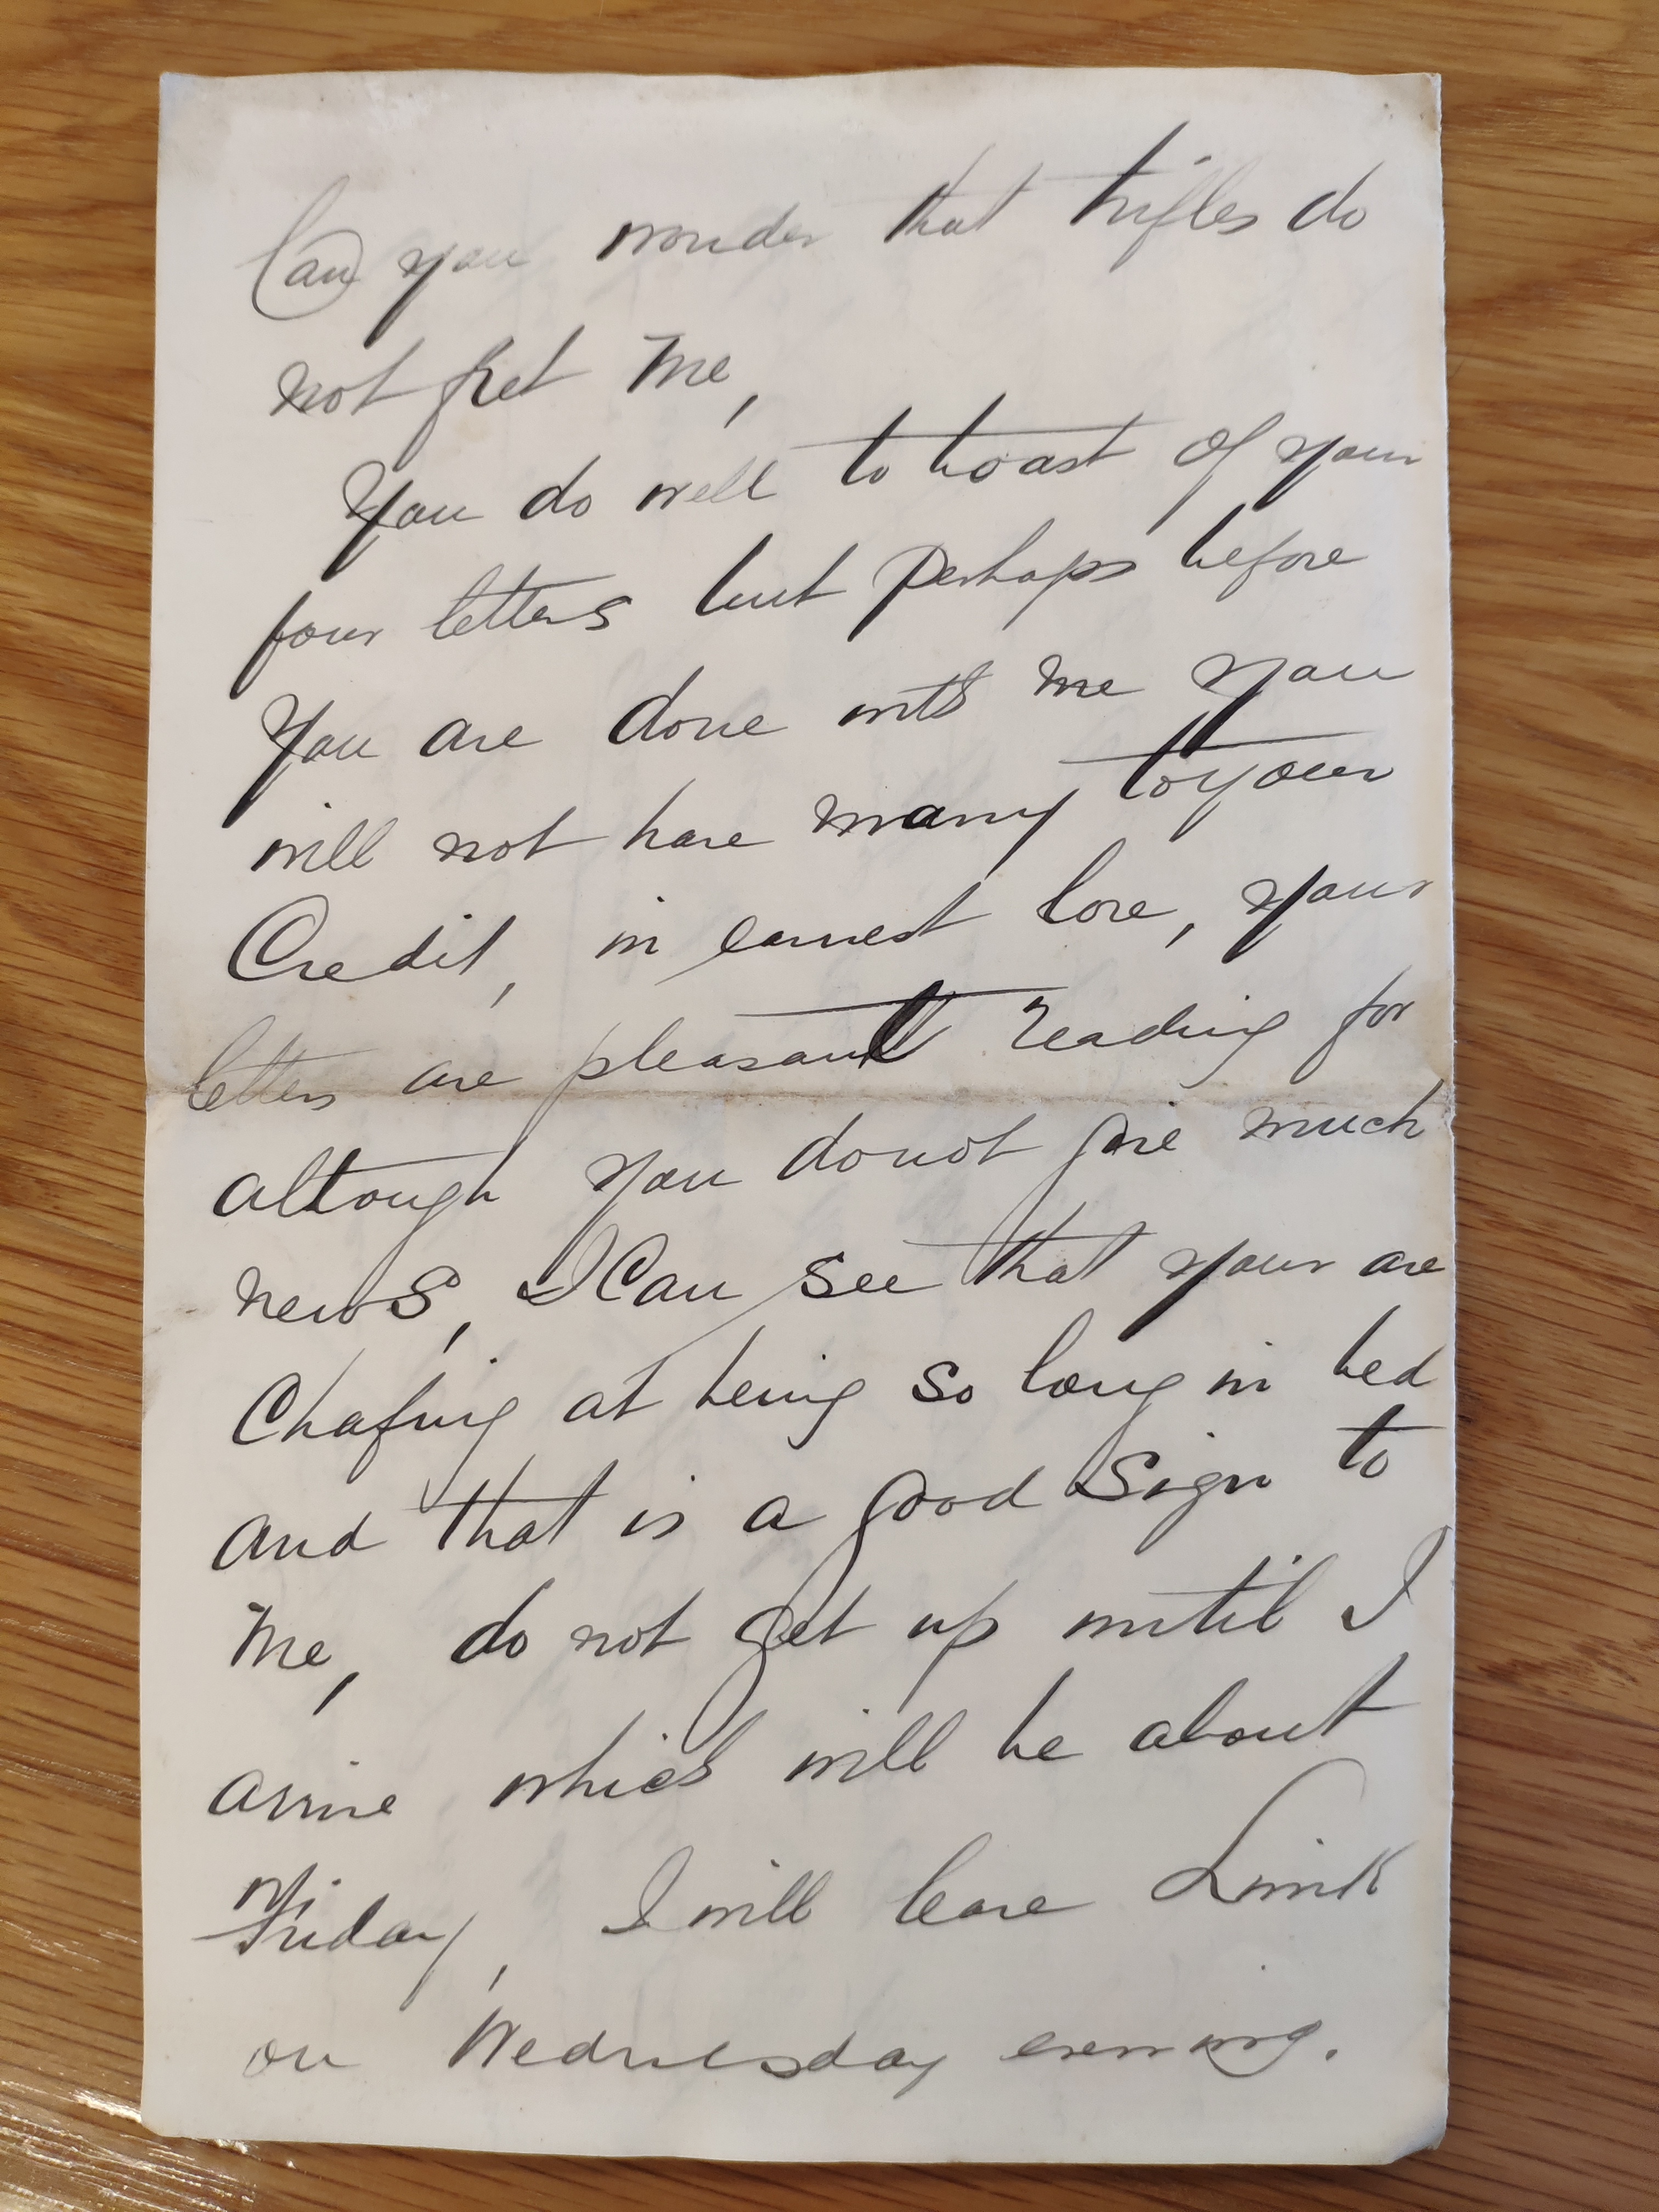 Can you wonder that trifles do
not fret me,
You do well to boast of your
four letters but perhaps before
You are done with me you
will not have many to your
Credit, in earnest love, your
letters are pleasant reading for
altough you do not give much
news, I Can see that your are
Chafing at being so long in bed
and that is a good Sign to
me, do not get up until I
arrive which will be about
Friday, I will leave
on Wednesday evening.